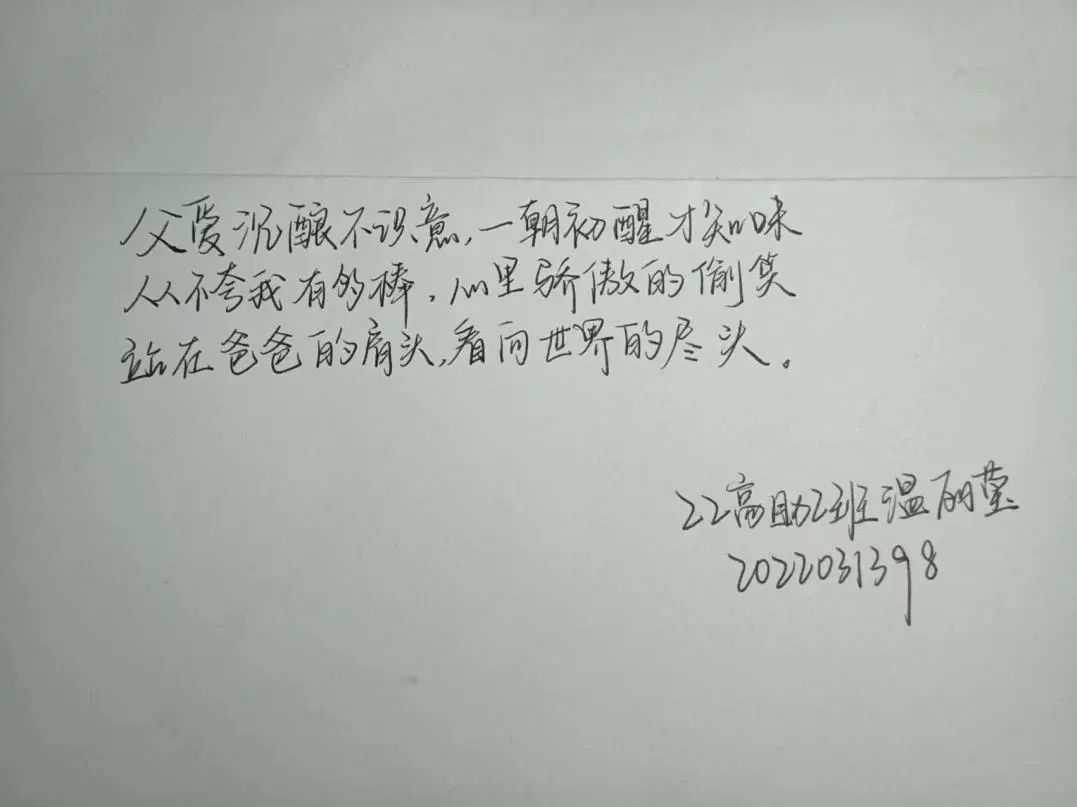 父爱沉酿不识意,一朝初醒才知味
从不夸我有多棒,心里骄傲的偷笑
站在爸爸的肩头,看向世界的尽头。
22高助2班温丽莹
2022031398